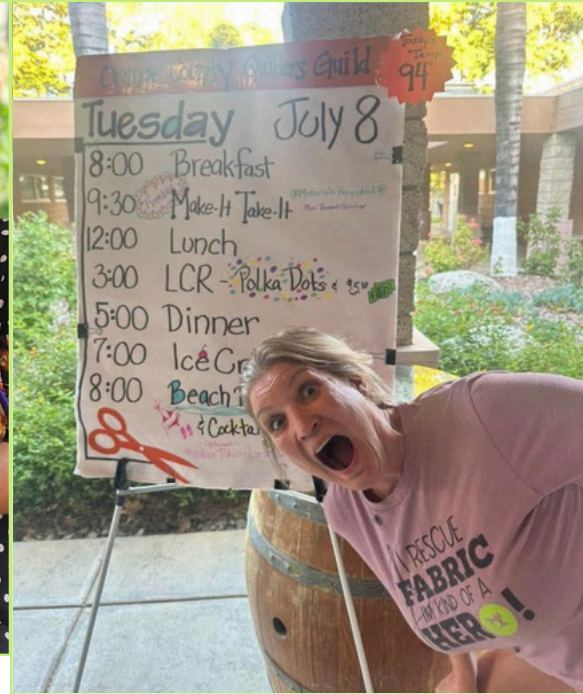 Orange County Quilters Guild
Today's
Temp
94°
Tuesday July 8
8:00 Breakfast
9:30 Make-It Take-It
12:00 Lunch
3:00 LCR - Polka Dots & $5
5:00 Dinner
7:00 Ice Cr
8:00 Beach
& Cockta
I RESCUE
FABRIC
I'M KIND OF A
HERO!